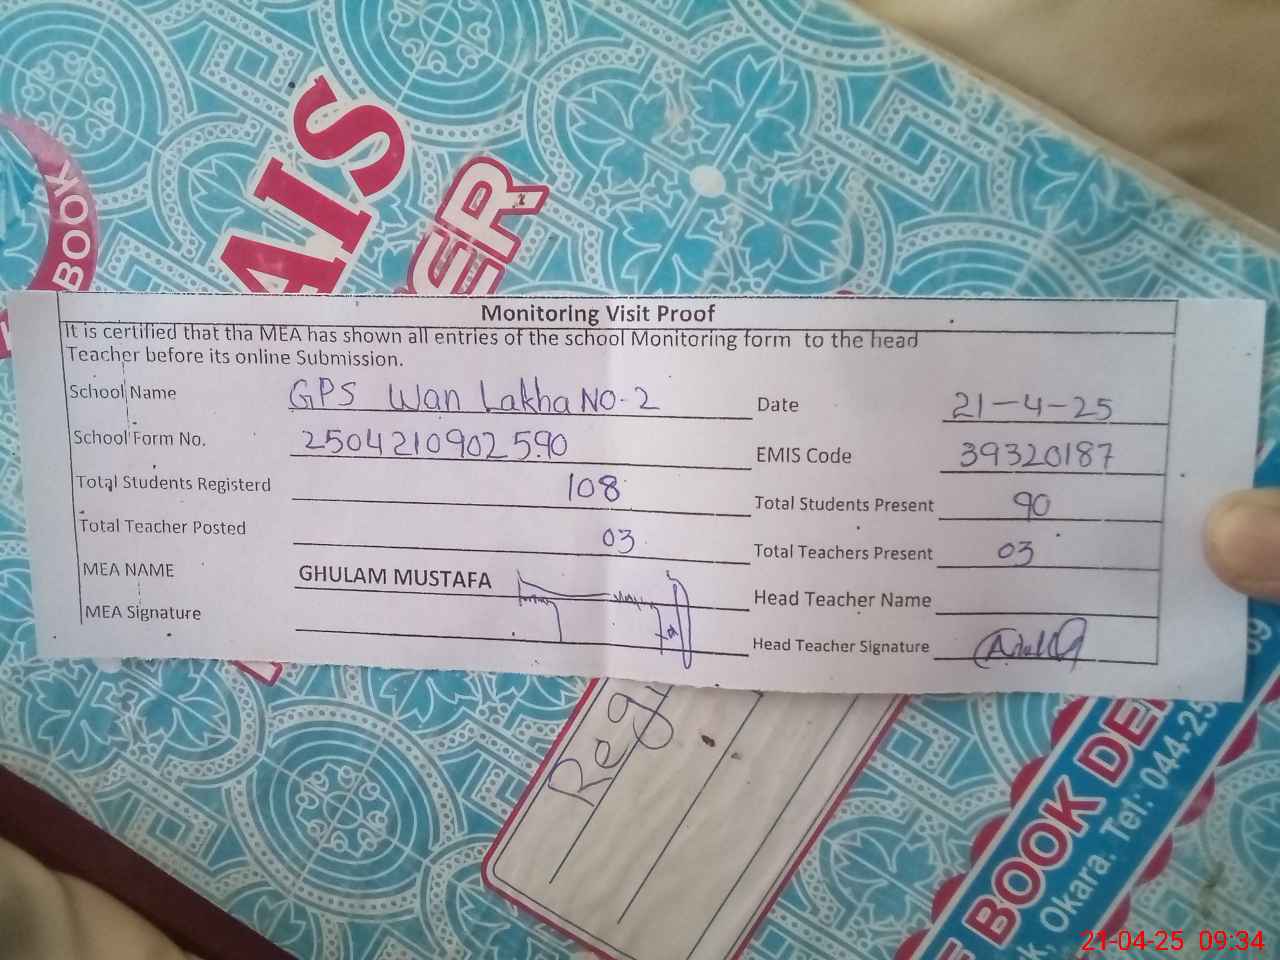 BOOK
AIS
ER
Monitoring Visit Proof
It is certified that tha MEA has shown all entries of the school Monitoring form to the head
Teacher before its online Submission.
School Name GPS Wan Lakha NO-2 Date 21-4-25
School Form No. 2504210902590 EMIS Code 39320187
Total Students Registerd 108 Total Students Present 90
Total Teacher Posted 03 Total Teachers Present 03
MEA NAME GHULAM MUSTAFA Head Teacher Name
MEA Signature Head Teacher Signature
Reg
BOOK DE
Okara. Tel: 044-25
09
21-04-25 09:34